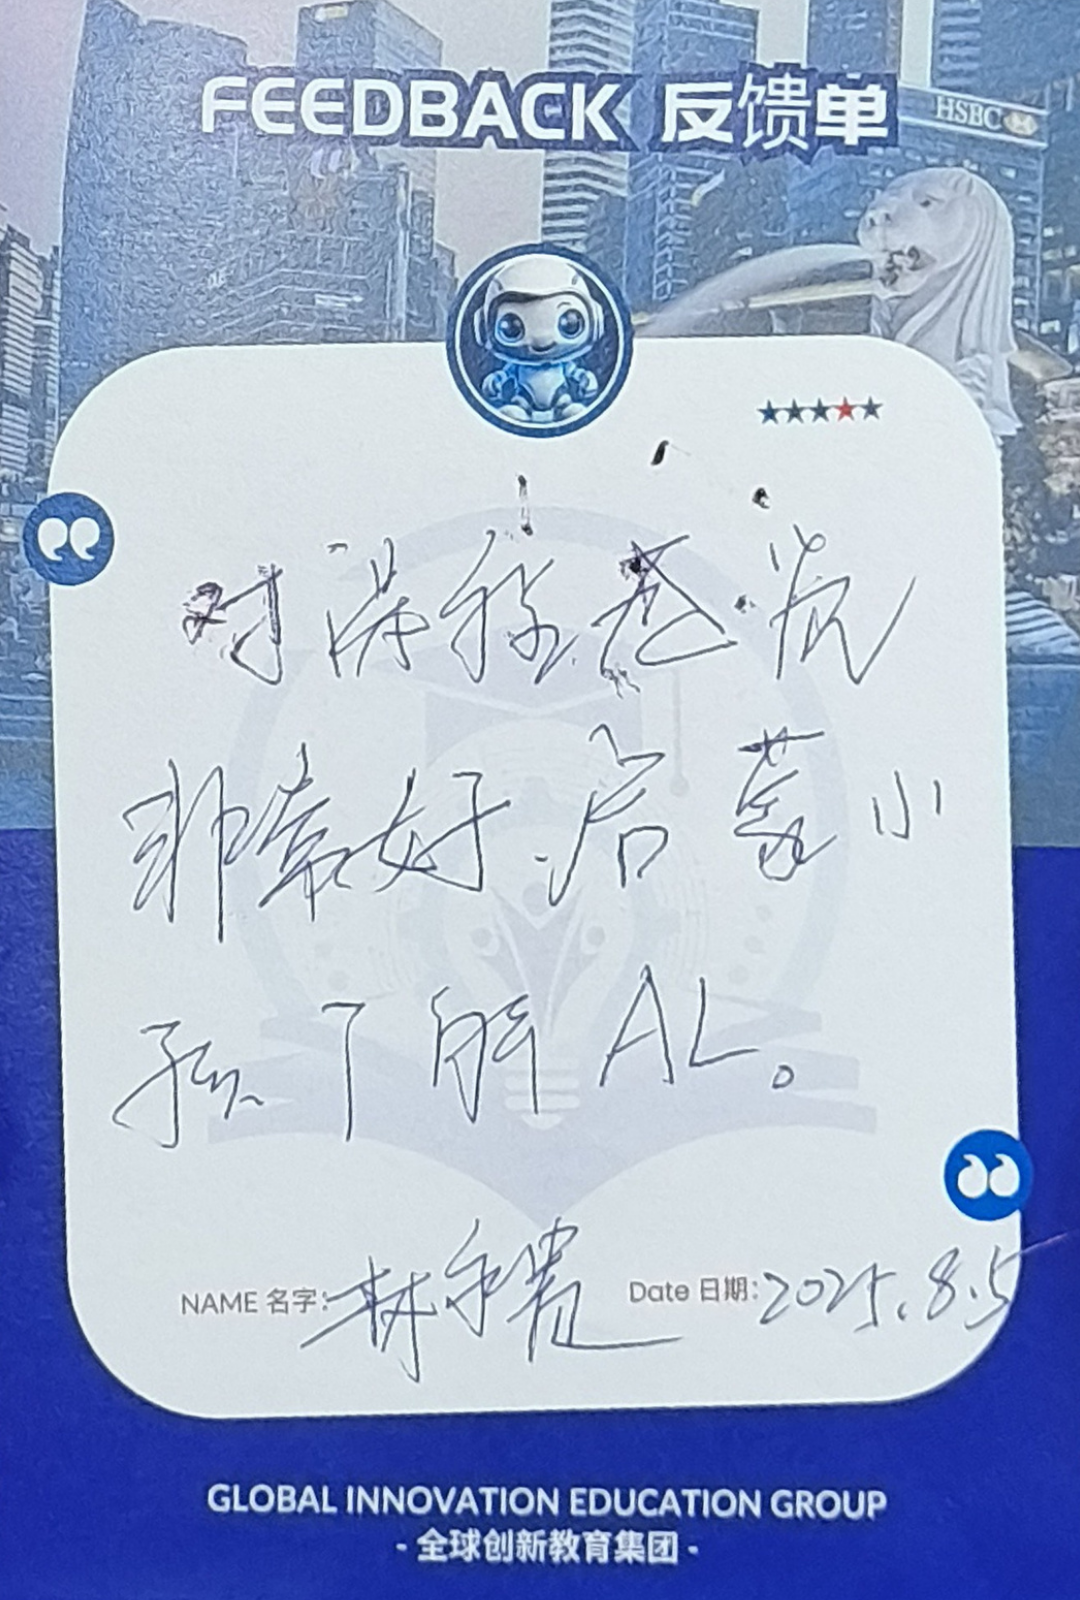 FEEDBACK 反馈单
HSBC
对课程老师
非常好.启蒙小
孩了解AL。
NAME 名字: 林
Date 日期: 2025.8.5
GLOBAL INNOVATION EDUCATION GROUP
- 全球创新教育集团 -